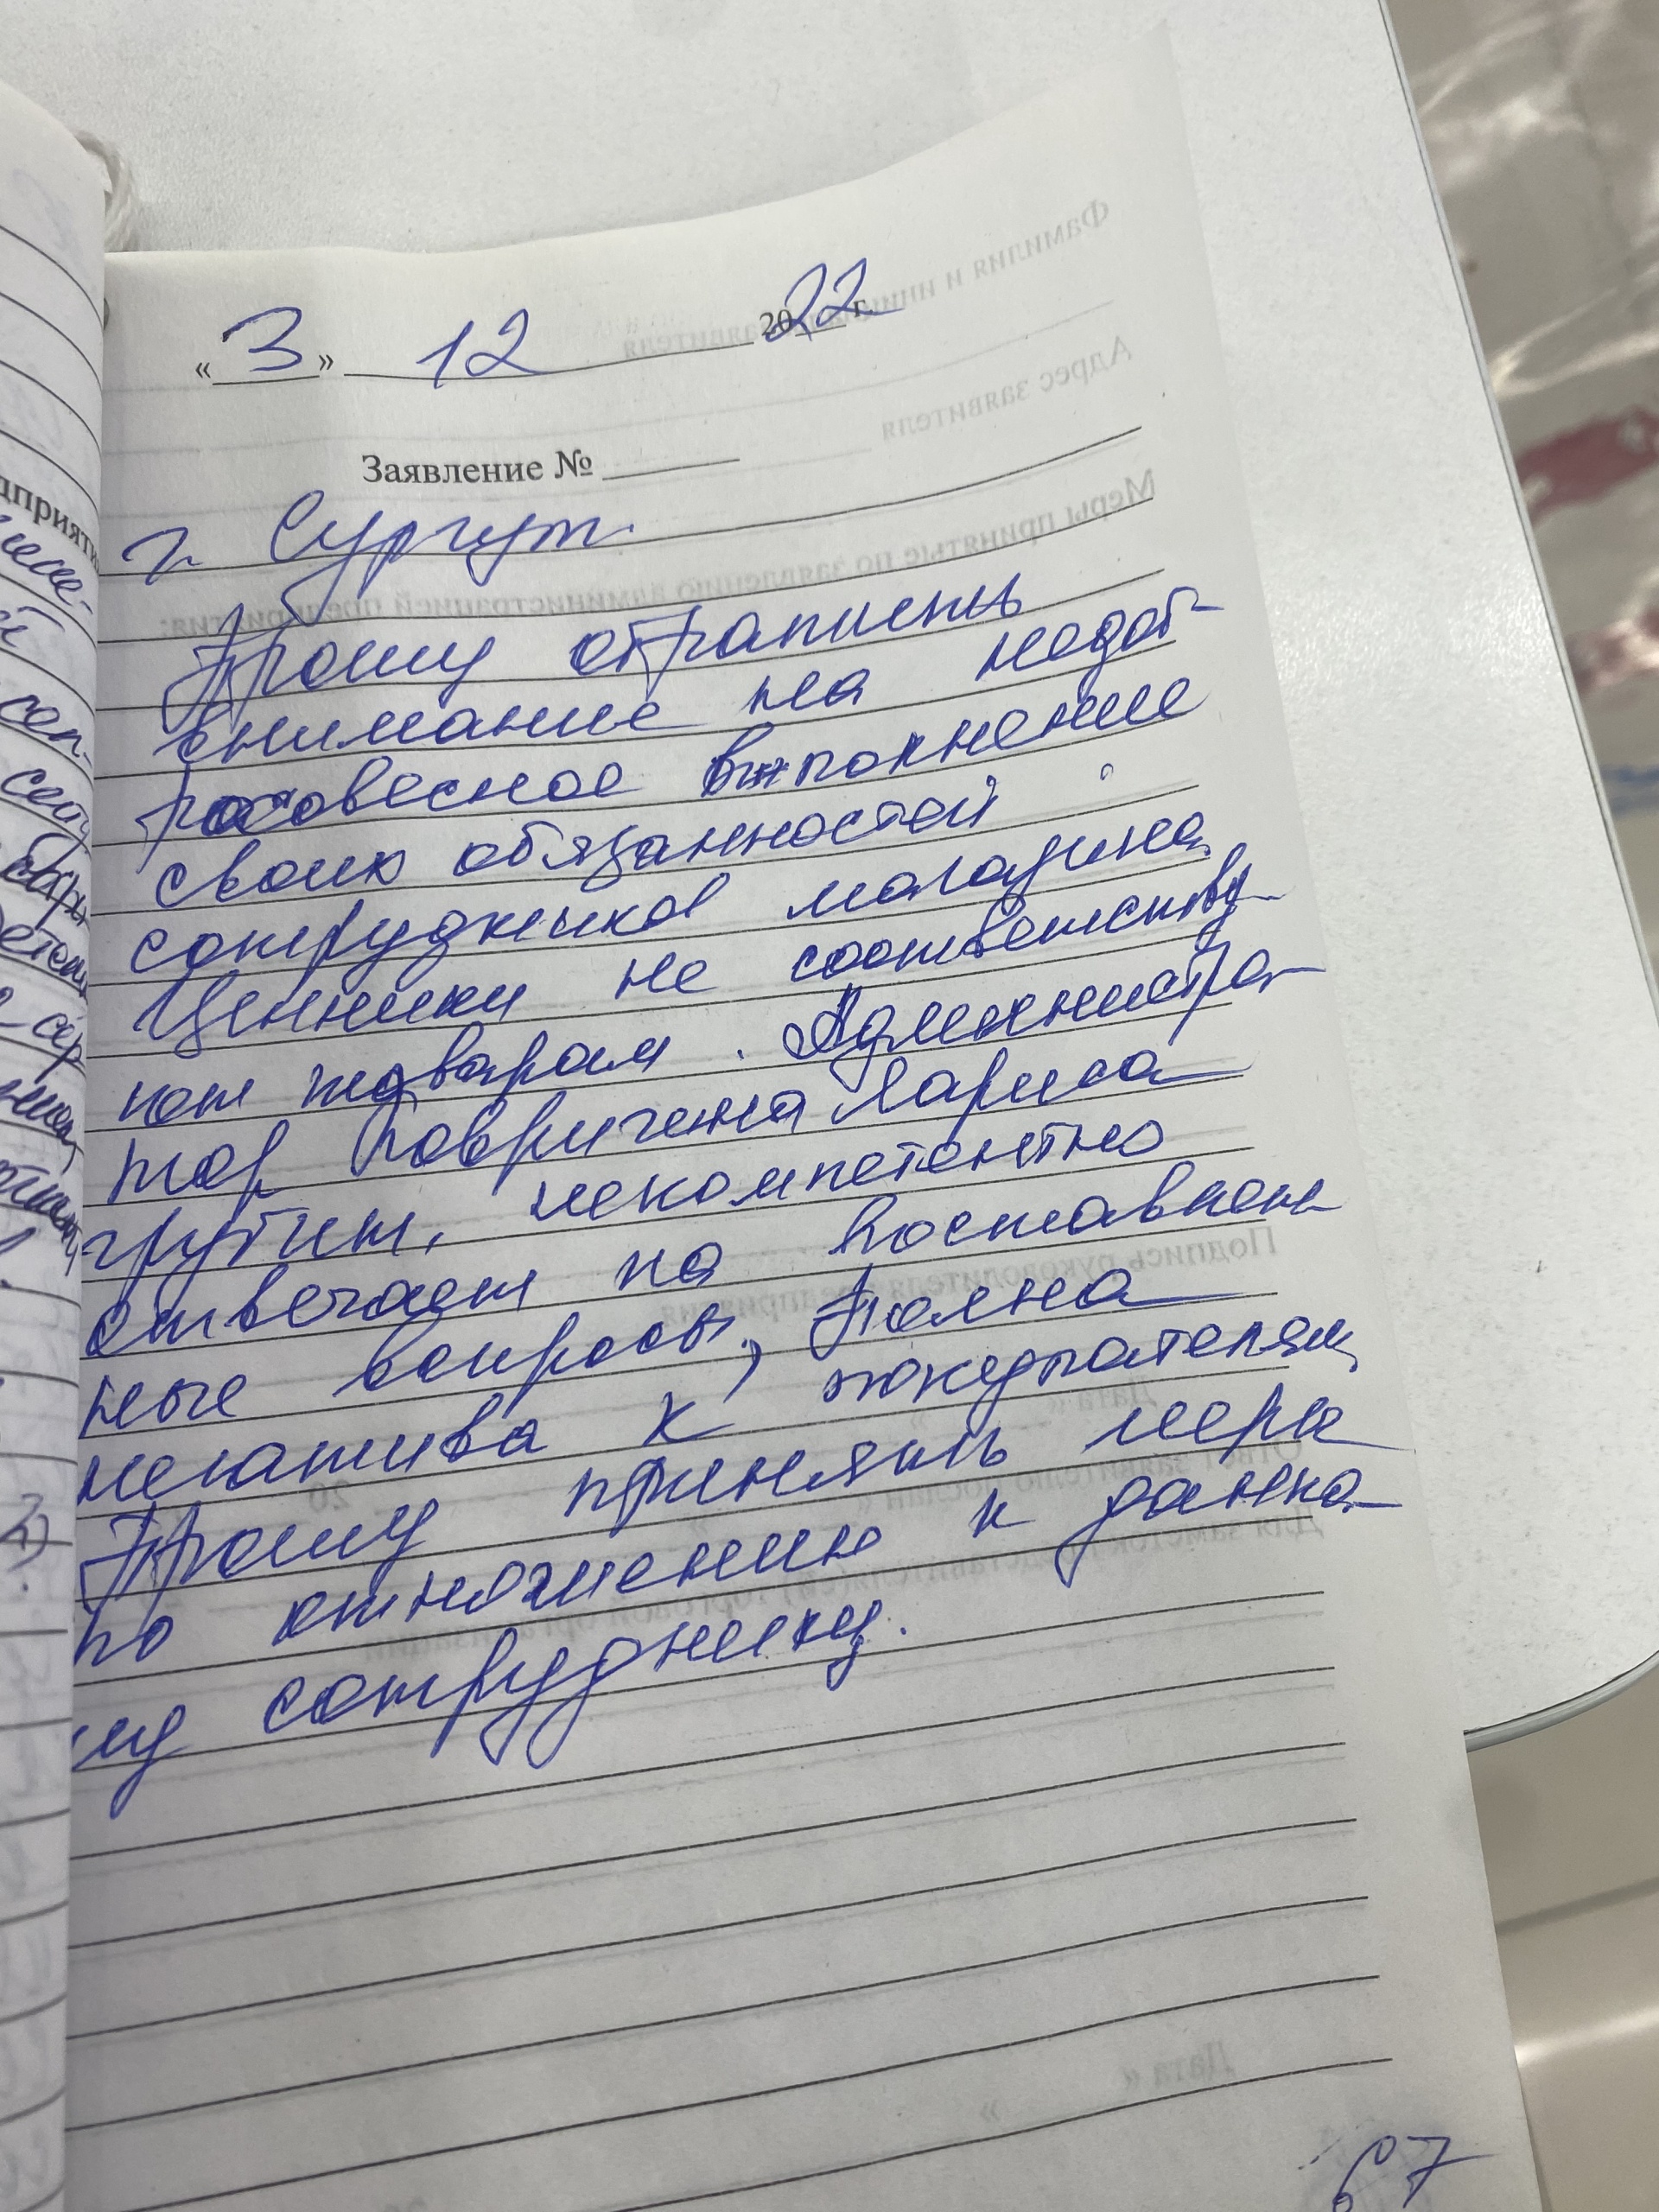 «3» 12 2022 г.
Заявление №
г. Сургут.
Прошу обратить
внимание на недоб-
росовесное выполнение
своих обязанностей
сотрудников магазина.
Ценники не соответству-
ют товарам. Администра-
тор Лариса
грубит, некомпетентно
отвечает на поставлен
ные вопросы, полна
негатива к покупателям,
Прошу принять меры
по отношению к данно-
му сотруднику.
67